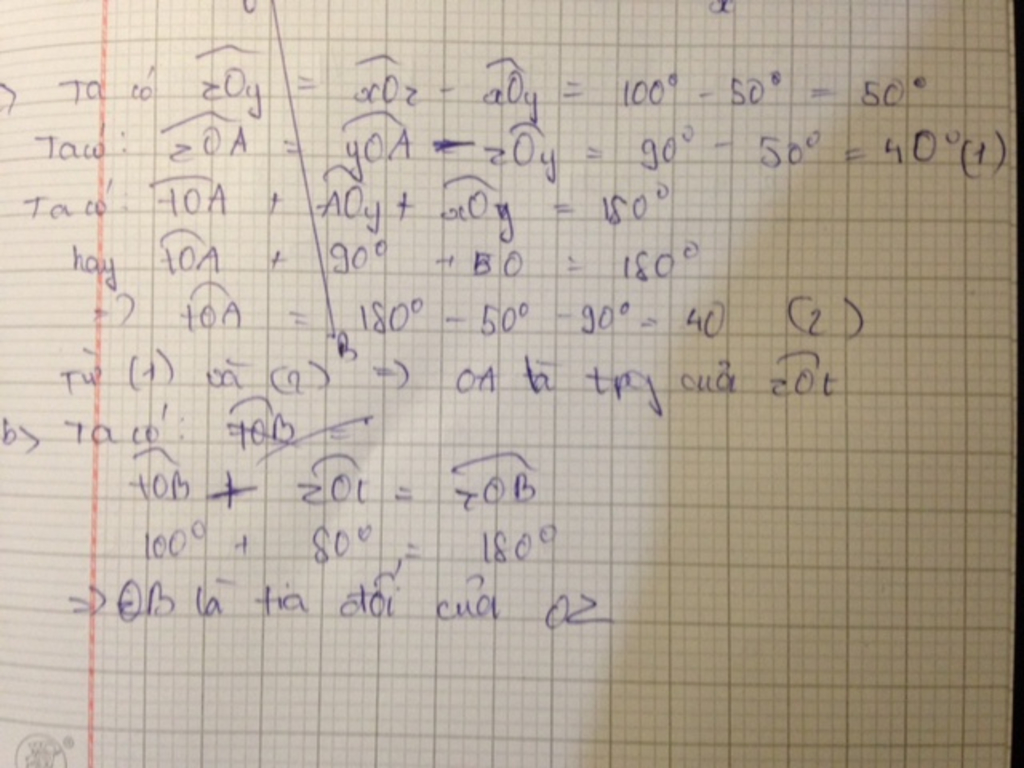 x
Ta có zOy = xOz - xOy = 100° - 50° = 50°
Ta có: zOA = yOA - zOy = 90° - 50° = 40° (1)
Ta có: tOA + AOy + xOy = 180°
hay tOA + 90° + 50 = 180°
=> tOA = 180° - 50° - 90° = 40 (2)
B
Từ (1) và (2) => OA là tpg cuả zOt
b> Ta có: tOB =
tOB + zOt = zOB
100° + 80° = 180°
=> OB là tia đối cuả OZ